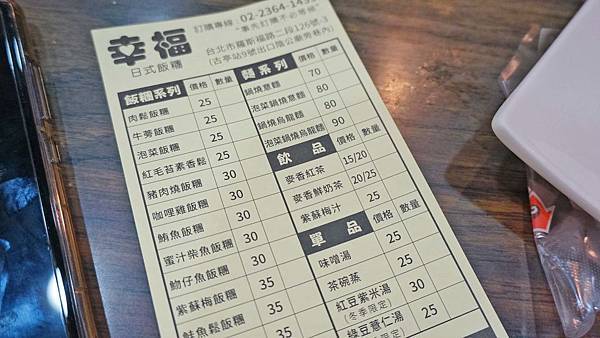 幸福
日式飯糰
訂購專線 02-2364-
"事先訂購不必等候"
台北市羅斯福路二段126號-3
(古亭站9號出口陰公廟旁巷內)
飯糰系列 價格 數量
肉鬆飯糰 25
牛蒡飯糰 25
泡菜飯糰 25
紅毛苔素香鬆 25
豬肉燒飯糰 30
咖哩雞飯糰 30
鮪魚飯糰 30
蜜汁柴魚飯糰 30
魩仔魚飯糰 30
紫蘇梅飯糰 35
鮭魚鬆飯糰 35
麵系列 價格 數量
鍋燒意麵 70
泡菜鍋燒意麵 80
鍋燒烏龍麵 80
泡菜鍋燒烏龍麵 90
飲品 價格 數量
麥香紅茶 15/20
麥香鮮奶茶 20/25
紫蘇梅汁 25
單品 價格 數量
味噌湯 25
茶碗蒸 25
紅豆紫米湯 30
(冬季限定)
綠豆薏仁湯 25